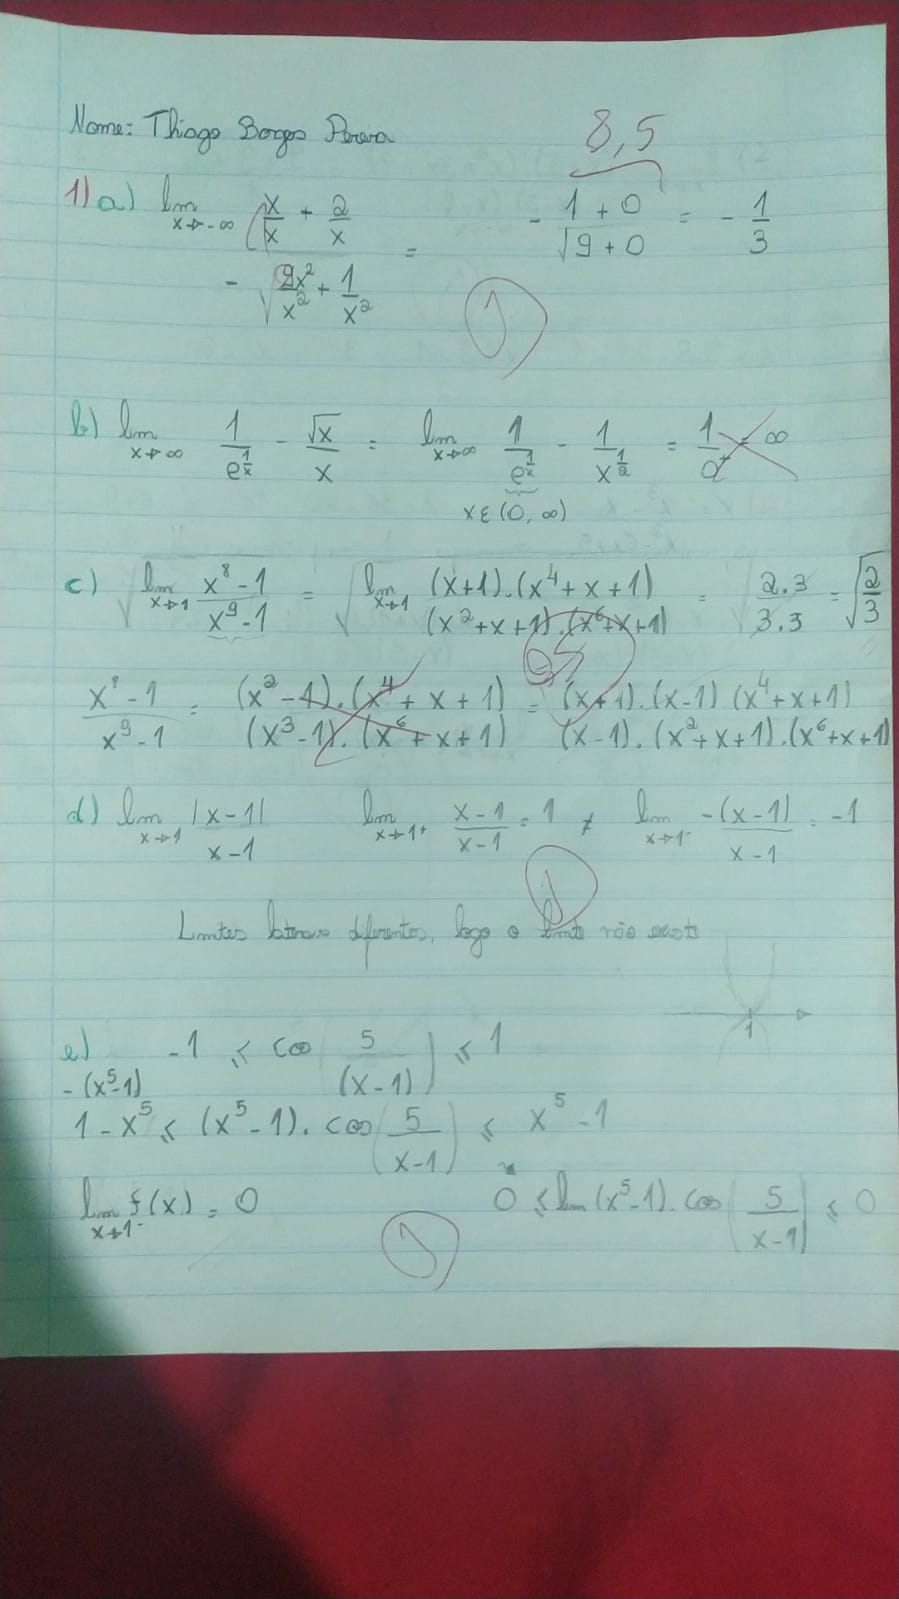 Nome: Thiago Borges Pereira
8,5
1) a) lim x→-∞ x/x + 2/x / -√(9x²/x² + 1/x²) = - (1 + 0)/√(9 + 0) = - 1/3
1
b) lim x→∞ 1/e^(1/x) - √x/x = lim x→∞ 1/e^(1/x) - 1/x^(1/2) = 1/0⁺ = ∞
x ∈ (0, ∞)
c) √(lim x→1 (x⁸ - 1)/(x⁹ - 1)) = √(lim x→1 (x+1).(x⁴ + x + 1)/(x² + x + 1).(x⁶ + x + 1)) = √(2.3/3.3) = √(2/3)
0,5
(x⁸ - 1)/(x⁹ - 1) = (x² - 1).(x⁴ + x + 1)/(x³ - 1).(x⁶ + x + 1) = (x+1).(x-1)(x⁴ + x + 1)/(x-1).(x² + x + 1).(x⁶ + x + 1)
d) lim x→1 |x - 1|/(x - 1) lim x→1+ (x - 1)/(x - 1) = 1 ≠ lim x→1⁻ -(x - 1)/(x - 1) = -1
1
Limites laterais diferentes, logo o limite não existe
1
e) -1 ≤ cos (5/(x - 1)) ≤ 1
-(x⁵-1)
1 - x⁵ ≤ (x⁵ - 1). cos (5/(x - 1)) ≤ x⁵ - 1
lim x→1⁻ f(x) = 0 0 ≤ lim (x⁵ - 1). cos (5/(x - 1)) ≤ 0
1